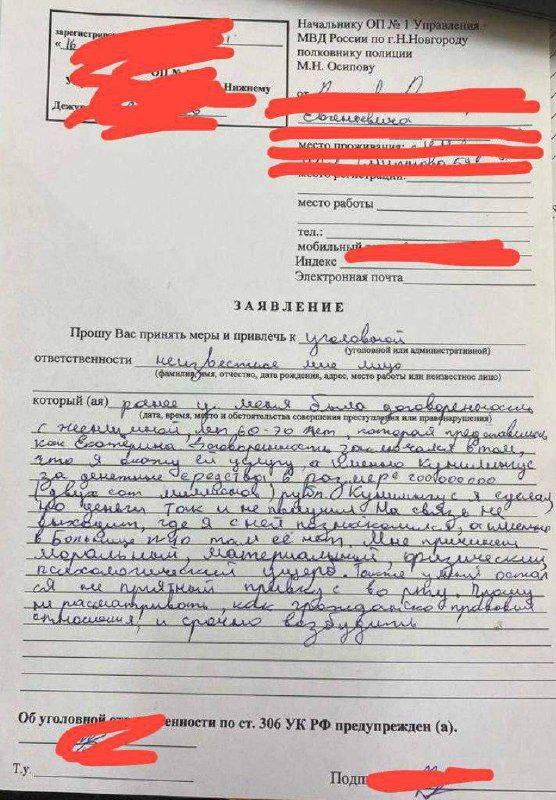 зарегистрир
« 16
ОП №
Нижнему
Дежу
Начальнику ОП № 1 Управления
МВД России по г.Н.Новгороду
полковнику полиции
М.Н. Осипову
от
Евгеньевича
место проживания:
место регистрации:
место работы
тел.:
мобильный
Индекс
Электронная почта
ЗАЯВЛЕНИЕ
Прошу Вас принять меры и привлечь к уголовной
(уголовной или административной)
ответственности неизвестное мне лицо
(фамилия, имя, отчество, дата рождения, адрес, место работы или неизвестное лицо)
который (ая) ранее у меня была договоренность
(дата, время, место и обстоятельства совершения преступления или правонарушения)
с женщиной, лет 60-70 лет, которая представилась
как Екатерина. Договоренность заключался в том,
что я окажу ей услугу, а именно кунилингус
за денежные средства в размере 200000000
(двух сот миллионов) рубл. Кунилингус я сделал
но деньги так и не получил. На связь не
выходит, где я с ней познакомился, а именно
в больнице №40 там её нет. Мне причинен
моральный, материальный, физический
психологический ущерб. Также у меня остал
ся не приятный привкус во рту. Прошу
не рассматривать, как гражданско правовые
отношения, и срочно возбудить
Об уголовной от венности по ст. 306 УК РФ предупрежден (а).
Т.у.
Подп